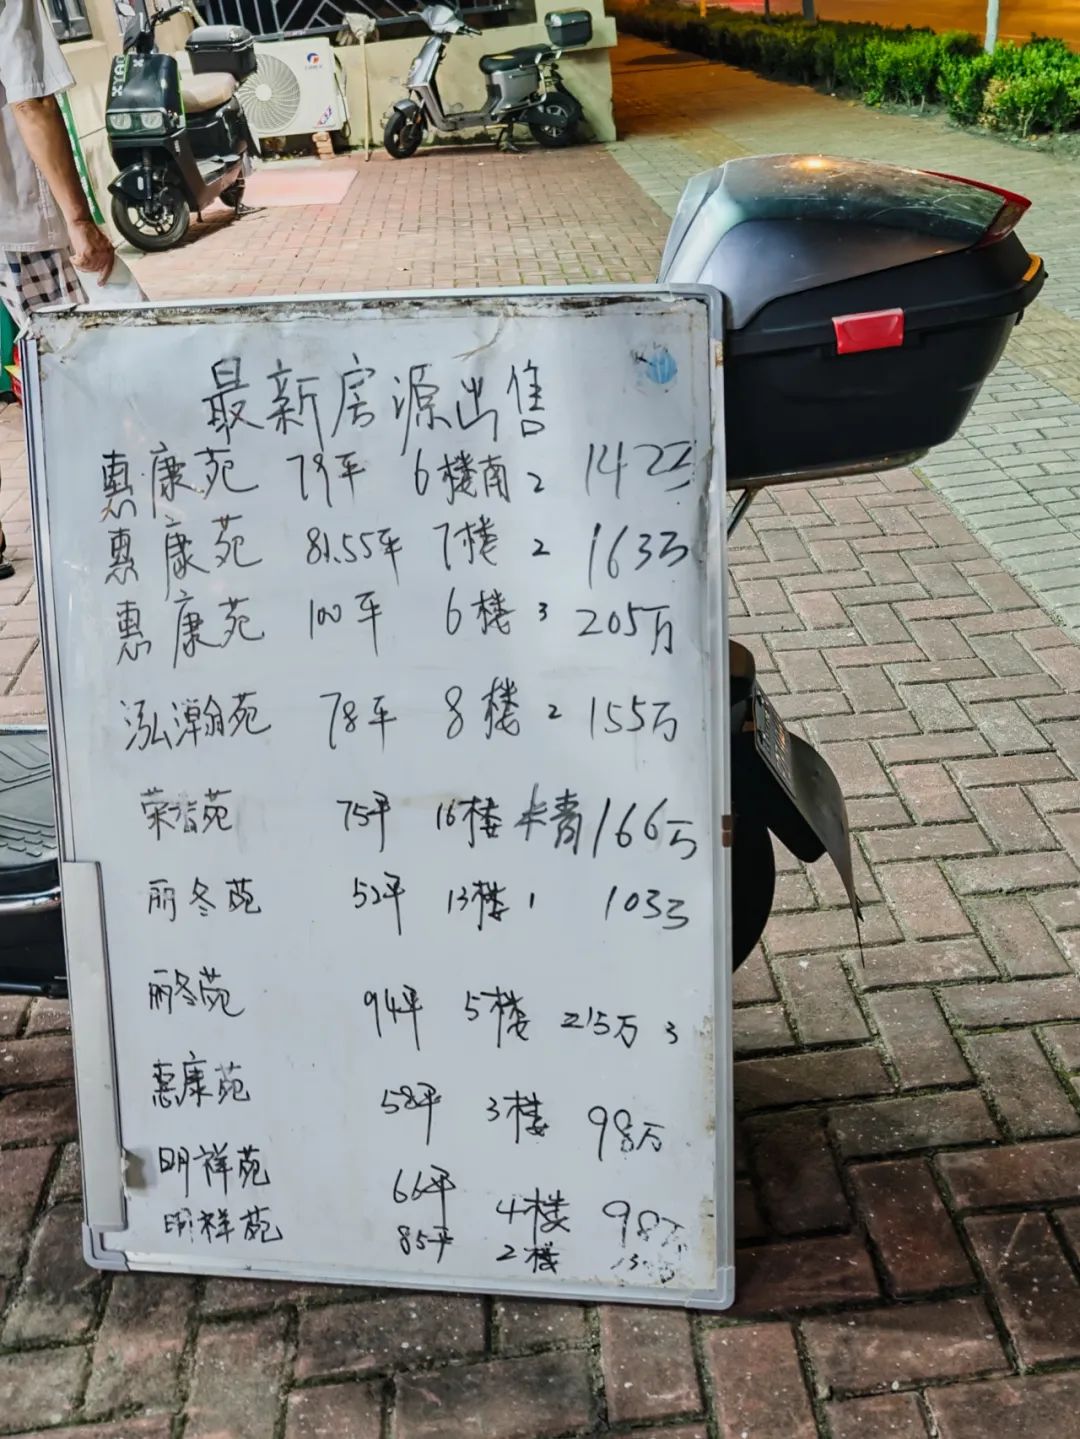 最新房源出售
惠康苑 79平 6楼南 2 142万
惠康苑 81.55平 7楼 2 163万
惠康苑 100平 6楼 3 205万
泓瀚苑 78平 8楼 2 155万
荣苑 75平 16楼 166万
丽冬苑 52平 13楼 1 103万
丽冬苑 94平 5楼 215万 3
惠康苑 58平 3楼 98万
明祥苑 66平 4楼 98万
明祥苑 85平 2楼